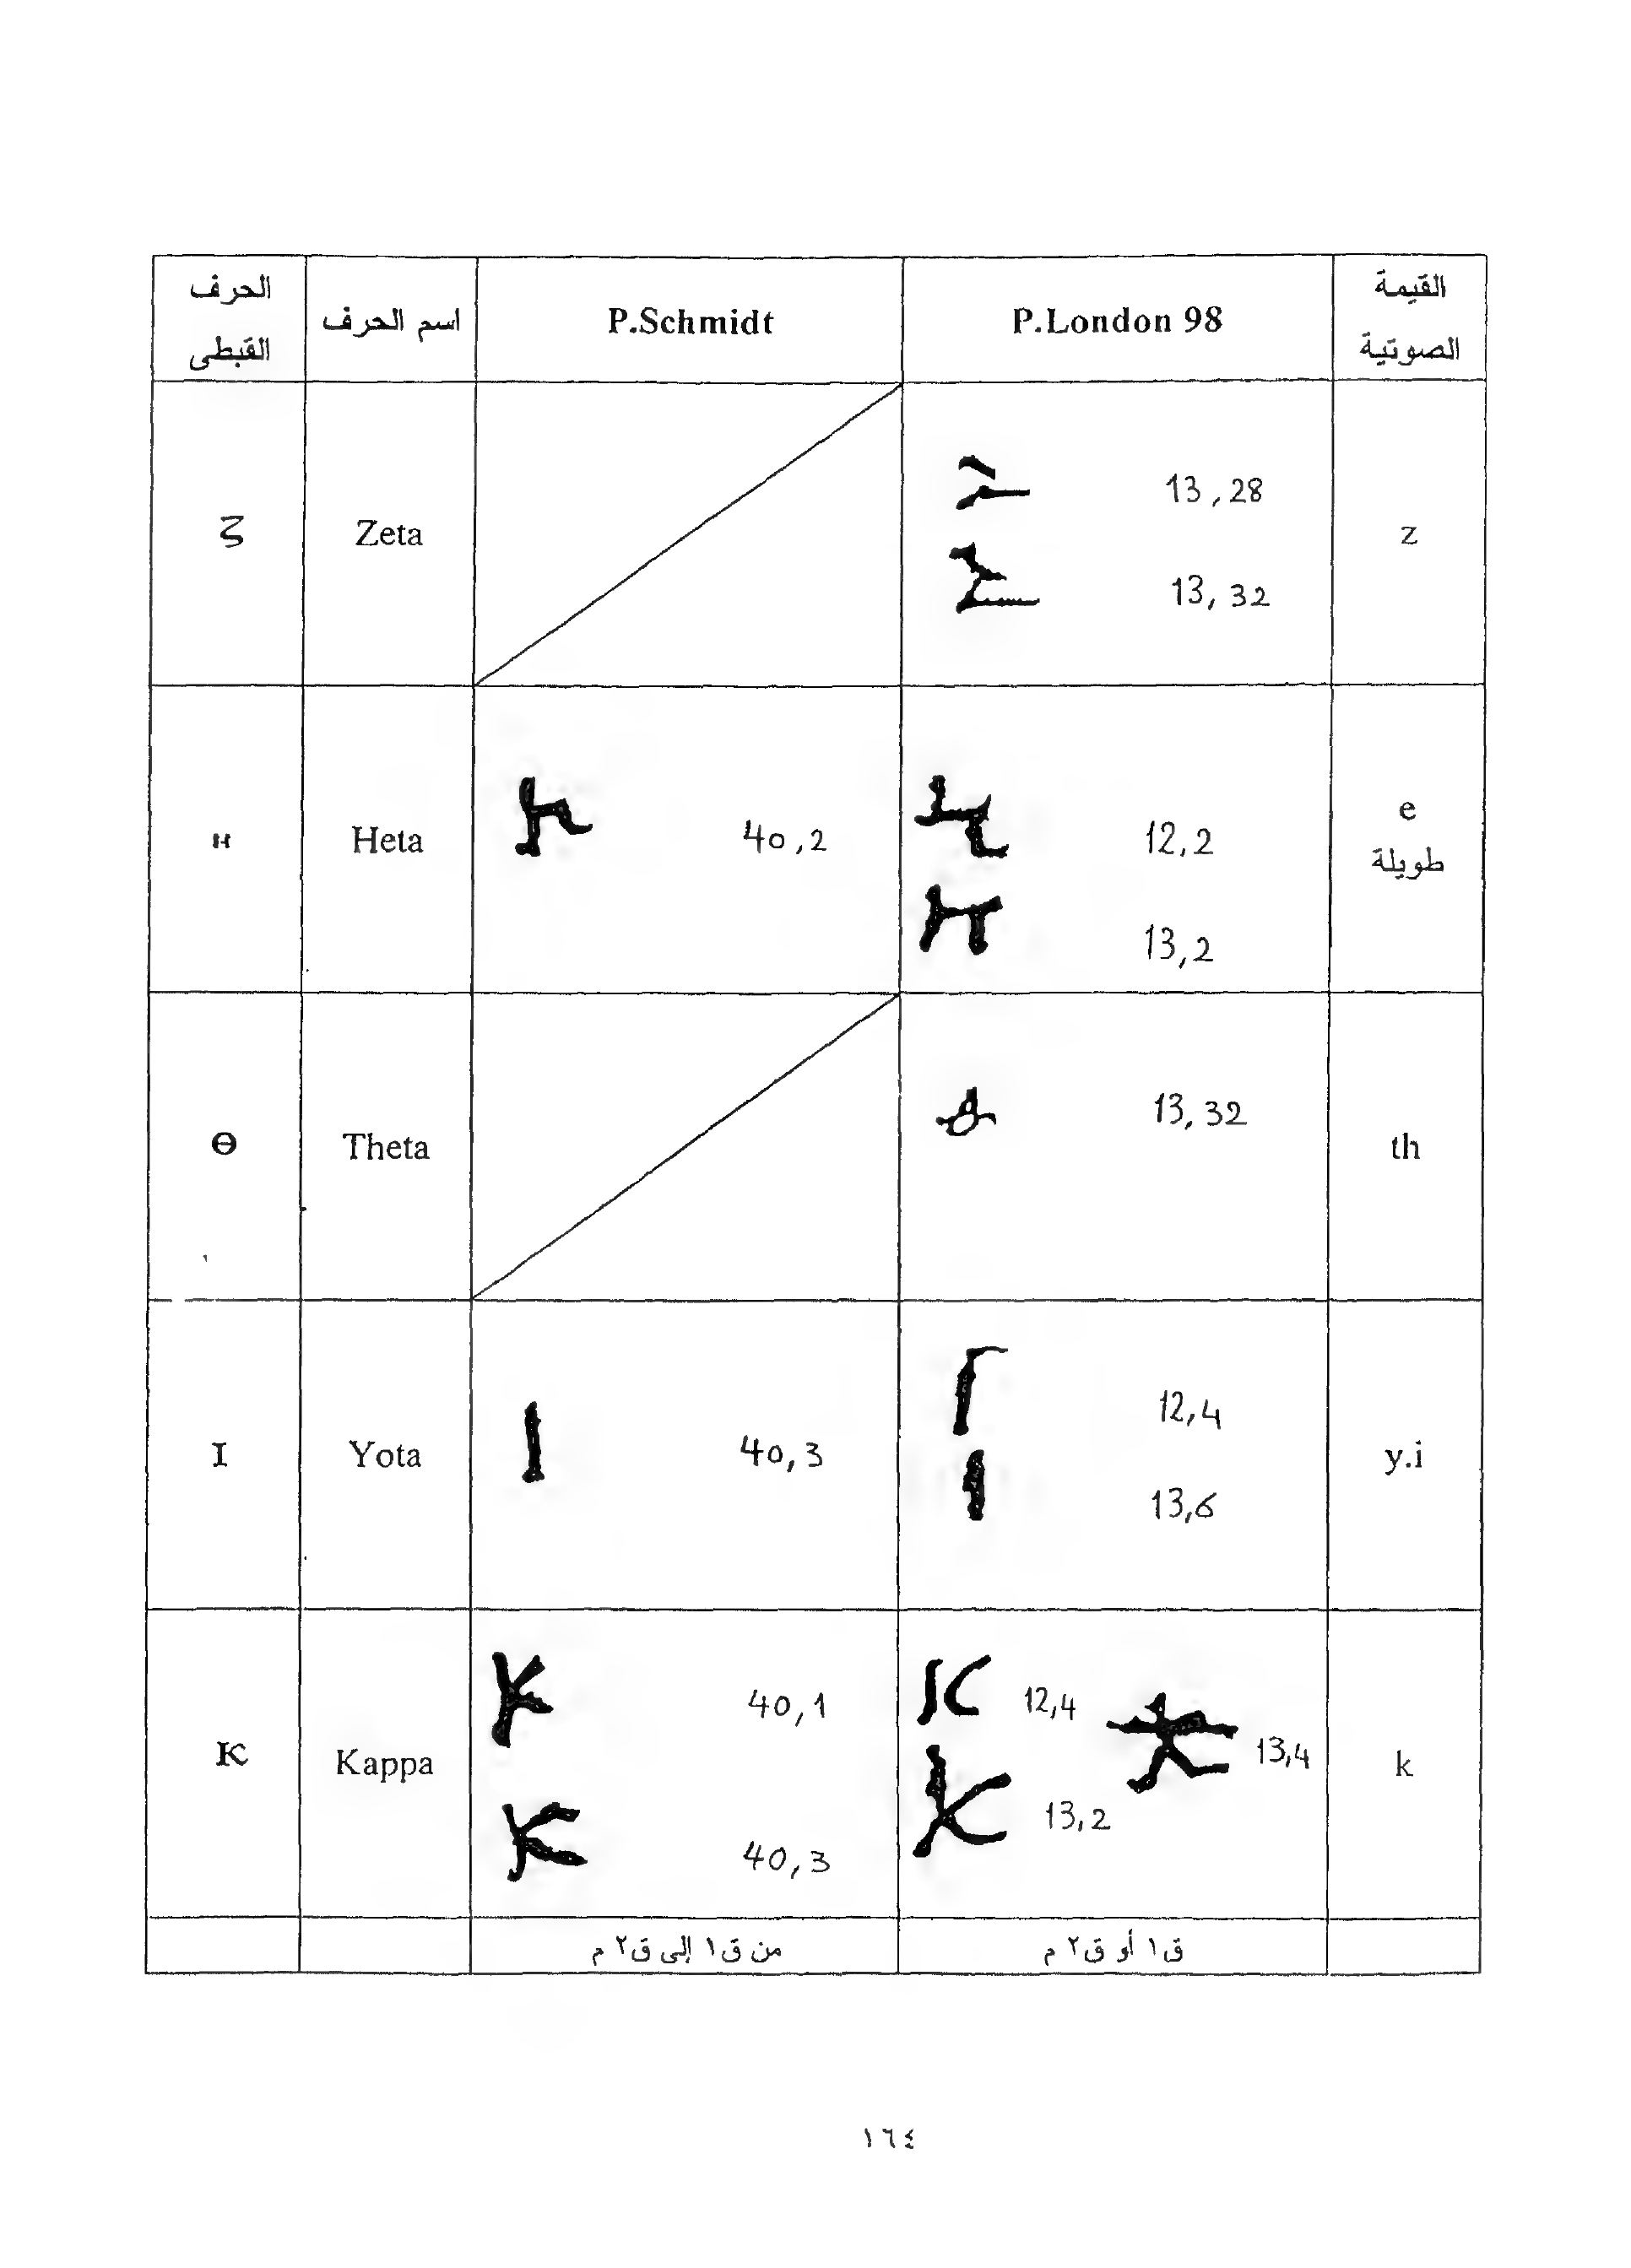 الحرف
القبطى
اسم الحرف
P.Schmidt
P.London 98
القيمة
الصوتية
ⲍ
Zeta
13,28
13,32
z
ⲏ
Heta
40,2
12,2
13,2
e
طويلة
ⲑ
Theta
13,32
th
ⲓ
Yota
40,3
12,4
13,6
y.i
ⲕ
Kappa
40,1
40,3
12,4
13,4
13,2
k
من ق١ إلى ق٢ م
ق١ أو ق٢ م
١٦٤